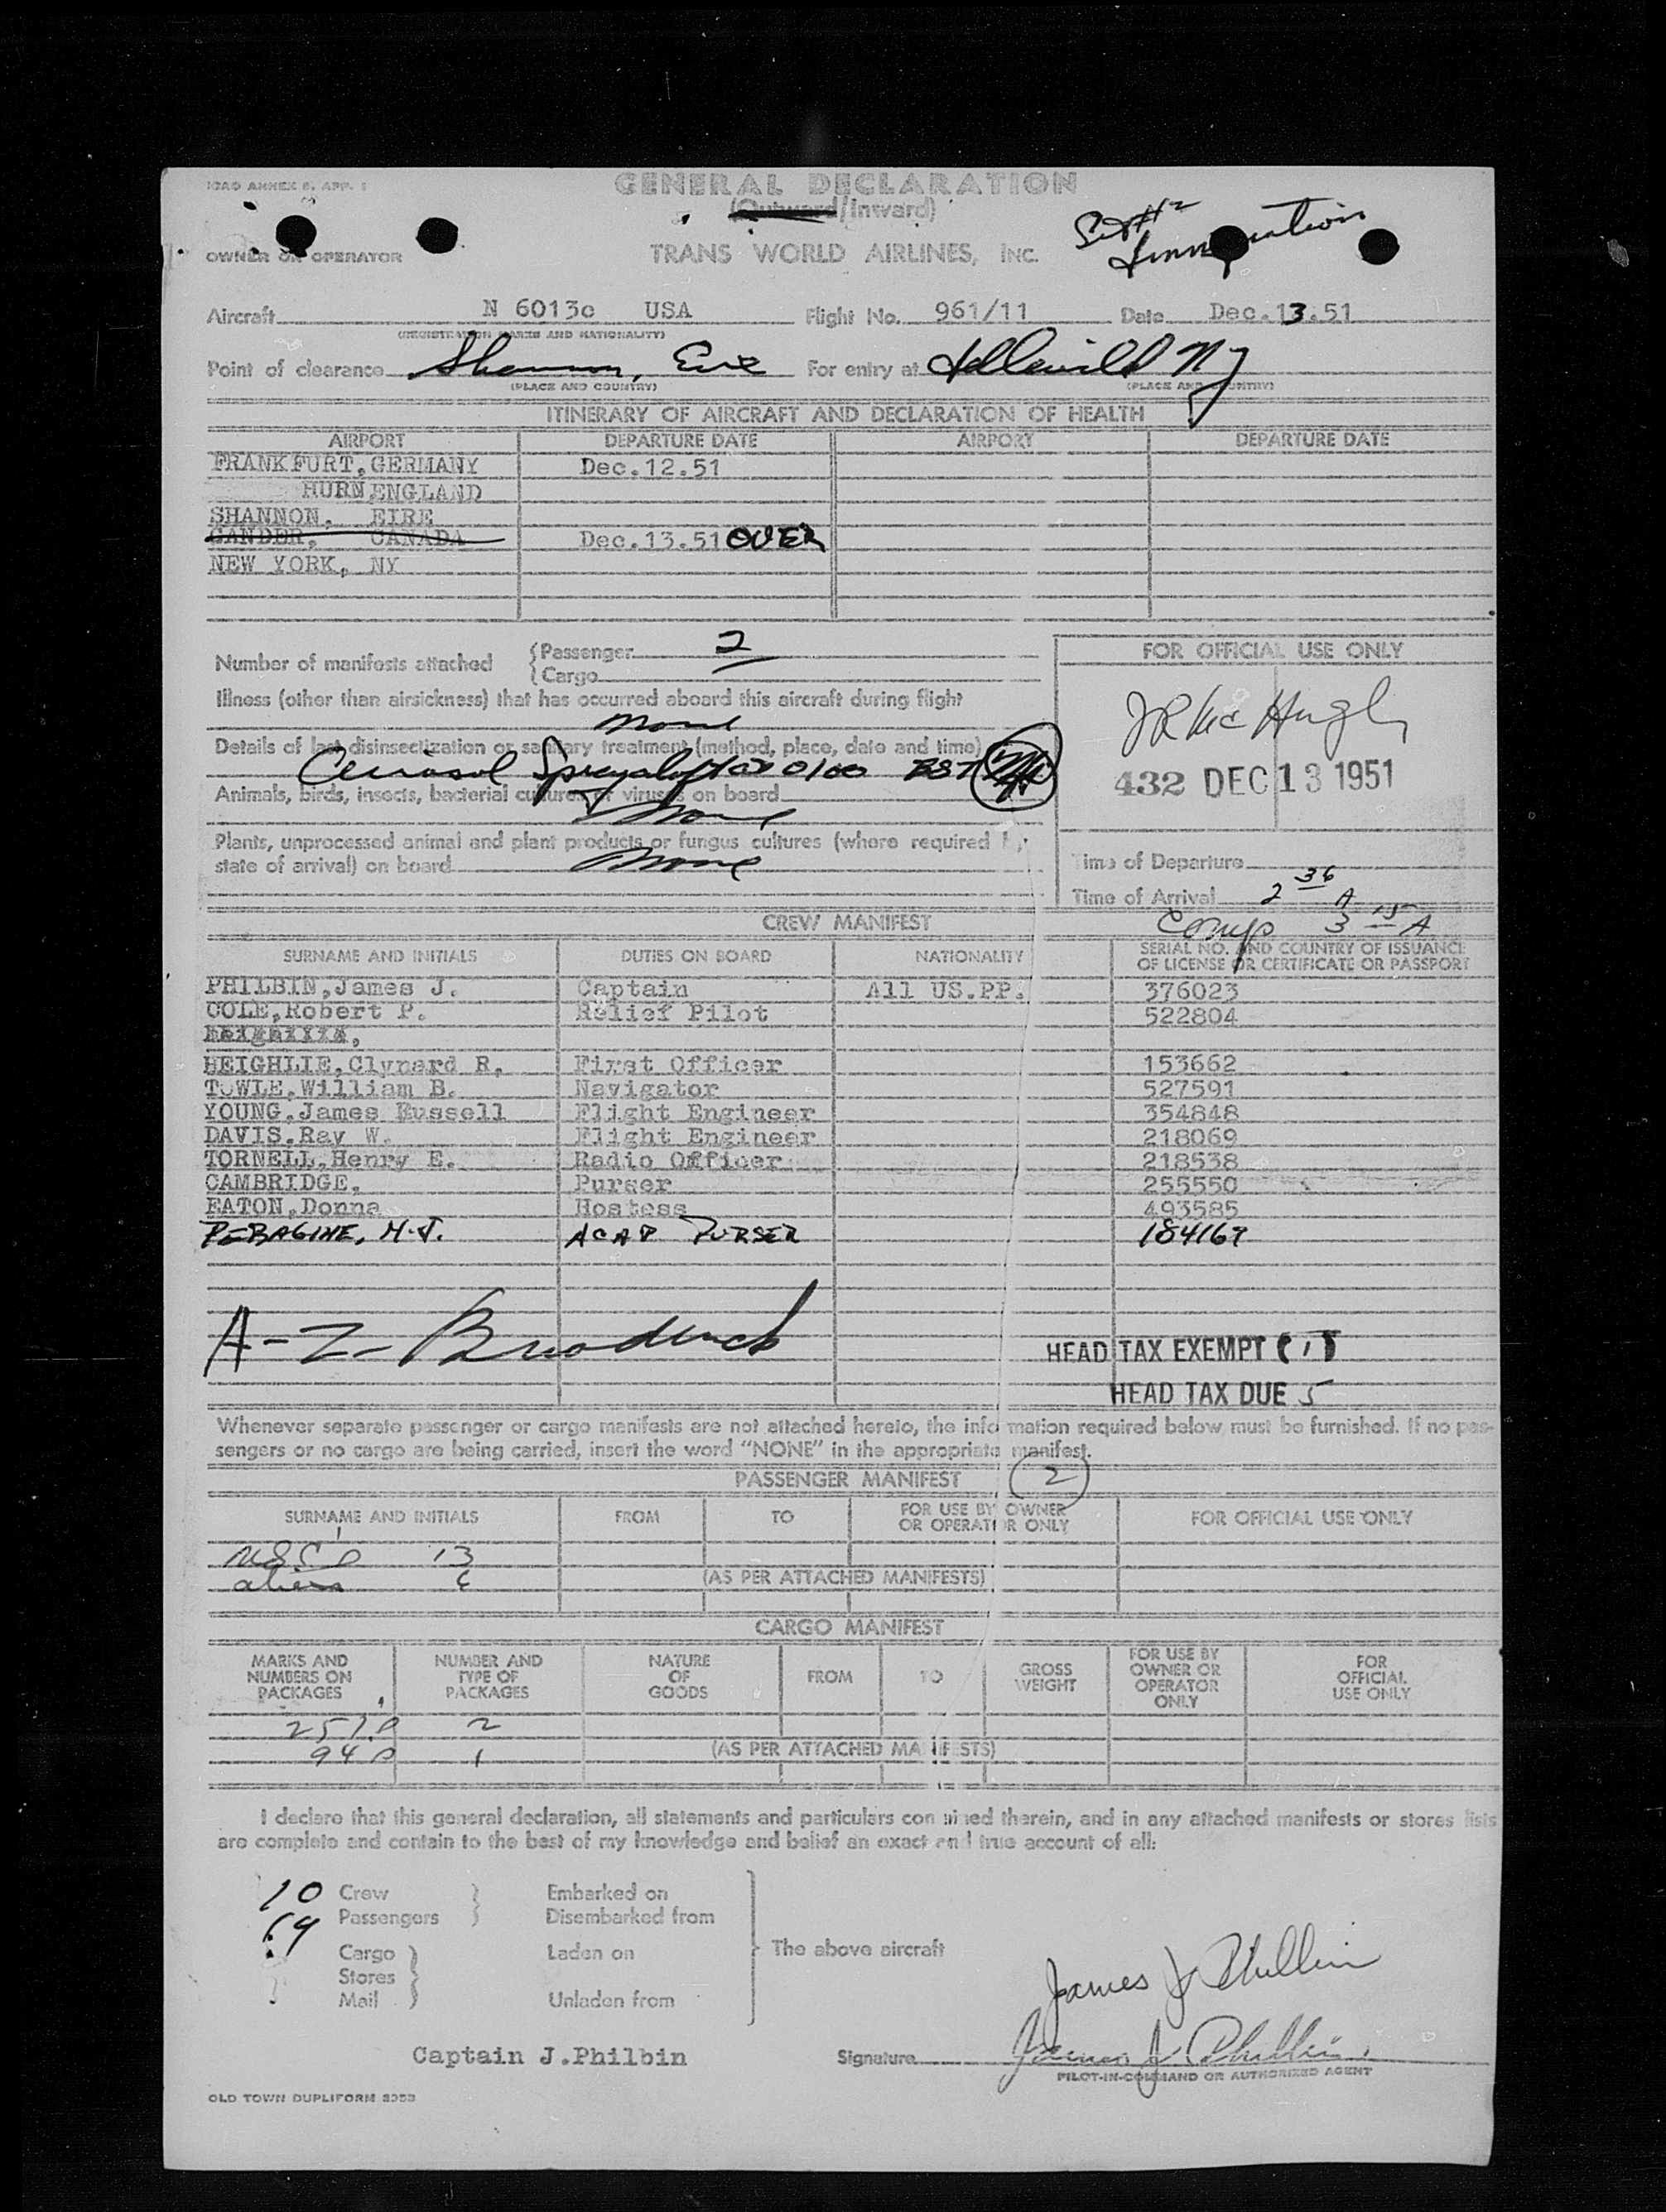 ICAO ANNEX 9, APP. 1
GENERAL DECLARATION
(Outward/Inward)
OWNER OR OPERATOR TRANS WORLD AIRLINES, INC.
Aircraft N 6013c USA Flight No. 961/11 Date Dec.13.51
(REGISTRATION MARKS AND NATIONALITY)
Point of clearance Shannon, Eire For entry at Idlewild NY
(PLACE AND COUNTRY) (PLACE AND COUNTRY)
ITINERARY OF AIRCRAFT AND DECLARATION OF HEALTH
AIRPORT DEPARTURE DATE AIRPORT DEPARTURE DATE
FRANKFURT, GERMANY Dec.12.51
HURN ENGLAND
SHANNON, EIRE
GANDER, CANADA Dec.13.51 OVER
NEW YORK, NY
Number of manifests attached {Passenger 2
{Cargo
FOR OFFICIAL USE ONLY
Illness (other than airsickness) that has occurred aboard this aircraft during flight
none
JR McHugh
Details of last disinsectization or sanitary treatment (method, place, date and time)
0100
432 DEC 13 1951
Animals, birds, insects, bacterial cultures or viruses on board
none
Plants, unprocessed animal and plant products or fungus cultures (where required by
state of arrival) on board none
Time of Departure
Time of Arrival 2 36 A
Comp 3 15 A
CREW MANIFEST
SURNAME AND INITIALS DUTIES ON BOARD NATIONALITY SERIAL NO. AND COUNTRY OF ISSUANCE
OF LICENSE OR CERTIFICATE OR PASSPORT
PHILBIN, James J. Captain All US.PP. 376023
COLE, Robert P. Relief Pilot 522804
HEIGHLIE, Clynard R, First Officer 153662
TOWLE, William B. Navigator 527591
YOUNG, James Russell Flight Engineer 354848
DAVIS, Ray W. Flight Engineer 218069
TORNELL, Henry E. Radio Officer 218538
CAMBRIDGE, Purser 255550
EATON, Donna Hostess 493585
PURSER 184167
A-Z
HEAD TAX EXEMPT
HEAD TAX DUE 5
Whenever separate passenger or cargo manifests are not attached hereto, the information required below must be furnished. If no pas-
sengers or no cargo are being carried, insert the word "NONE" in the appropriate manifest.
PASSENGER MANIFEST 2
SURNAME AND INITIALS FROM TO FOR USE BY OWNER
OR OPERATOR ONLY FOR OFFICIAL USE ONLY
13
aliens 6
(AS PER ATTACHED MANIFESTS)
CARGO MANIFEST
MARKS AND
NUMBERS ON
PACKAGES NUMBER AND
TYPE OF
PACKAGES NATURE
OF
GOODS FROM TO GROSS
WEIGHT FOR USE BY
OWNER OR
OPERATOR
ONLY FOR
OFFICIAL
USE ONLY
2
1
(AS PER ATTACHED MANIFESTS)
I declare that this general declaration, all statements and particulars contained therein, and in any attached manifests or stores lists
are complete and contain to the best of my knowledge and belief an exact and true account of all:
10 Crew Embarked on
19 Passengers Disembarked from
Cargo Laden on The above aircraft
Stores
Mail Unladen from
James J Philbin
Captain J.Philbin Signature James J. Philbin
PILOT-IN-COMMAND OR AUTHORIZED AGENT
OLD TOWN DUPLIFORM